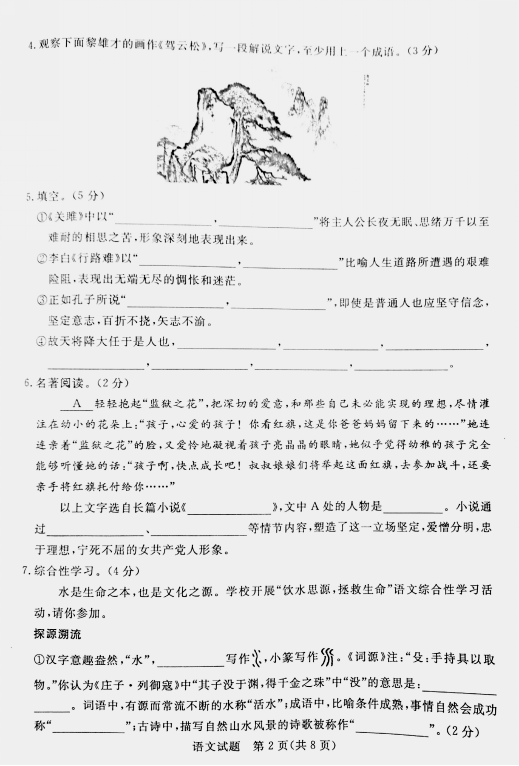 4.观察下面黎雄才的画作《驾云松》,写一段解说文字,至少用上一个成语。(3分)
5.填空。(5分)
①《关雎》中以“____________,____________”将主人公长夜无眠、思绪万千以至
难耐的相思之苦,形象深刻地表现出来。
②李白《行路难》以“____________,____________”比喻人生道路所遭遇的艰难
险阻,表现出无端无尽的惆怅和迷茫。
③正如孔子所说“____________,____________”,即使是普通人也应坚守信念,
坚定意志,百折不挠,矢志不渝。
④故天将降大任于是人也,____________,____________,____________,
____________,____________,____________,____________。
6.名著阅读。(2分)
__A__轻轻抱起“监狱之花”,把深切的爱意,和那些自己未必能实现的理想,尽情灌
注在幼小的花朵上:“孩子,心爱的孩子!你看红旗,这是你爸爸妈妈留下来的……”她连
连亲着“监狱之花”的脸,又爱怜地凝视着孩子亮晶晶的眼睛,她似乎觉得幼稚的孩子完全
能够听懂她的话:“孩子啊,快点成长吧!叔叔娘娘们将举起这面红旗,去参加战斗,还要
亲手将红旗托付给你……”
以上文字选自长篇小说《____________》,文中A处的人物是________。小说通
过____________、____________等情节内容,塑造了这一立场坚定,爱憎分明,忠
于理想,宁死不屈的女共产党人形象。
7.综合性学习。(4分)
水是生命之本,也是文化之源。学校开展“饮水思源,拯救生命”语文综合性学习活
动,请你参加。
探源溯流
①汉字意趣盎然,“水”,________写作,小篆写作。《词源》注:“殳:手持具以取
物。”你认为《庄子·列御寇》中“其子没于渊,得千金之珠”中“没”的意思是:________
______。词语中,有源而常流不断的水称“活水”;成语中,比喻条件成熟,事情自然会成功
称“____________”;古诗中,描写自然山水风景的诗歌被称作“____________”。(2分)
语文试题 第2页(共8页)